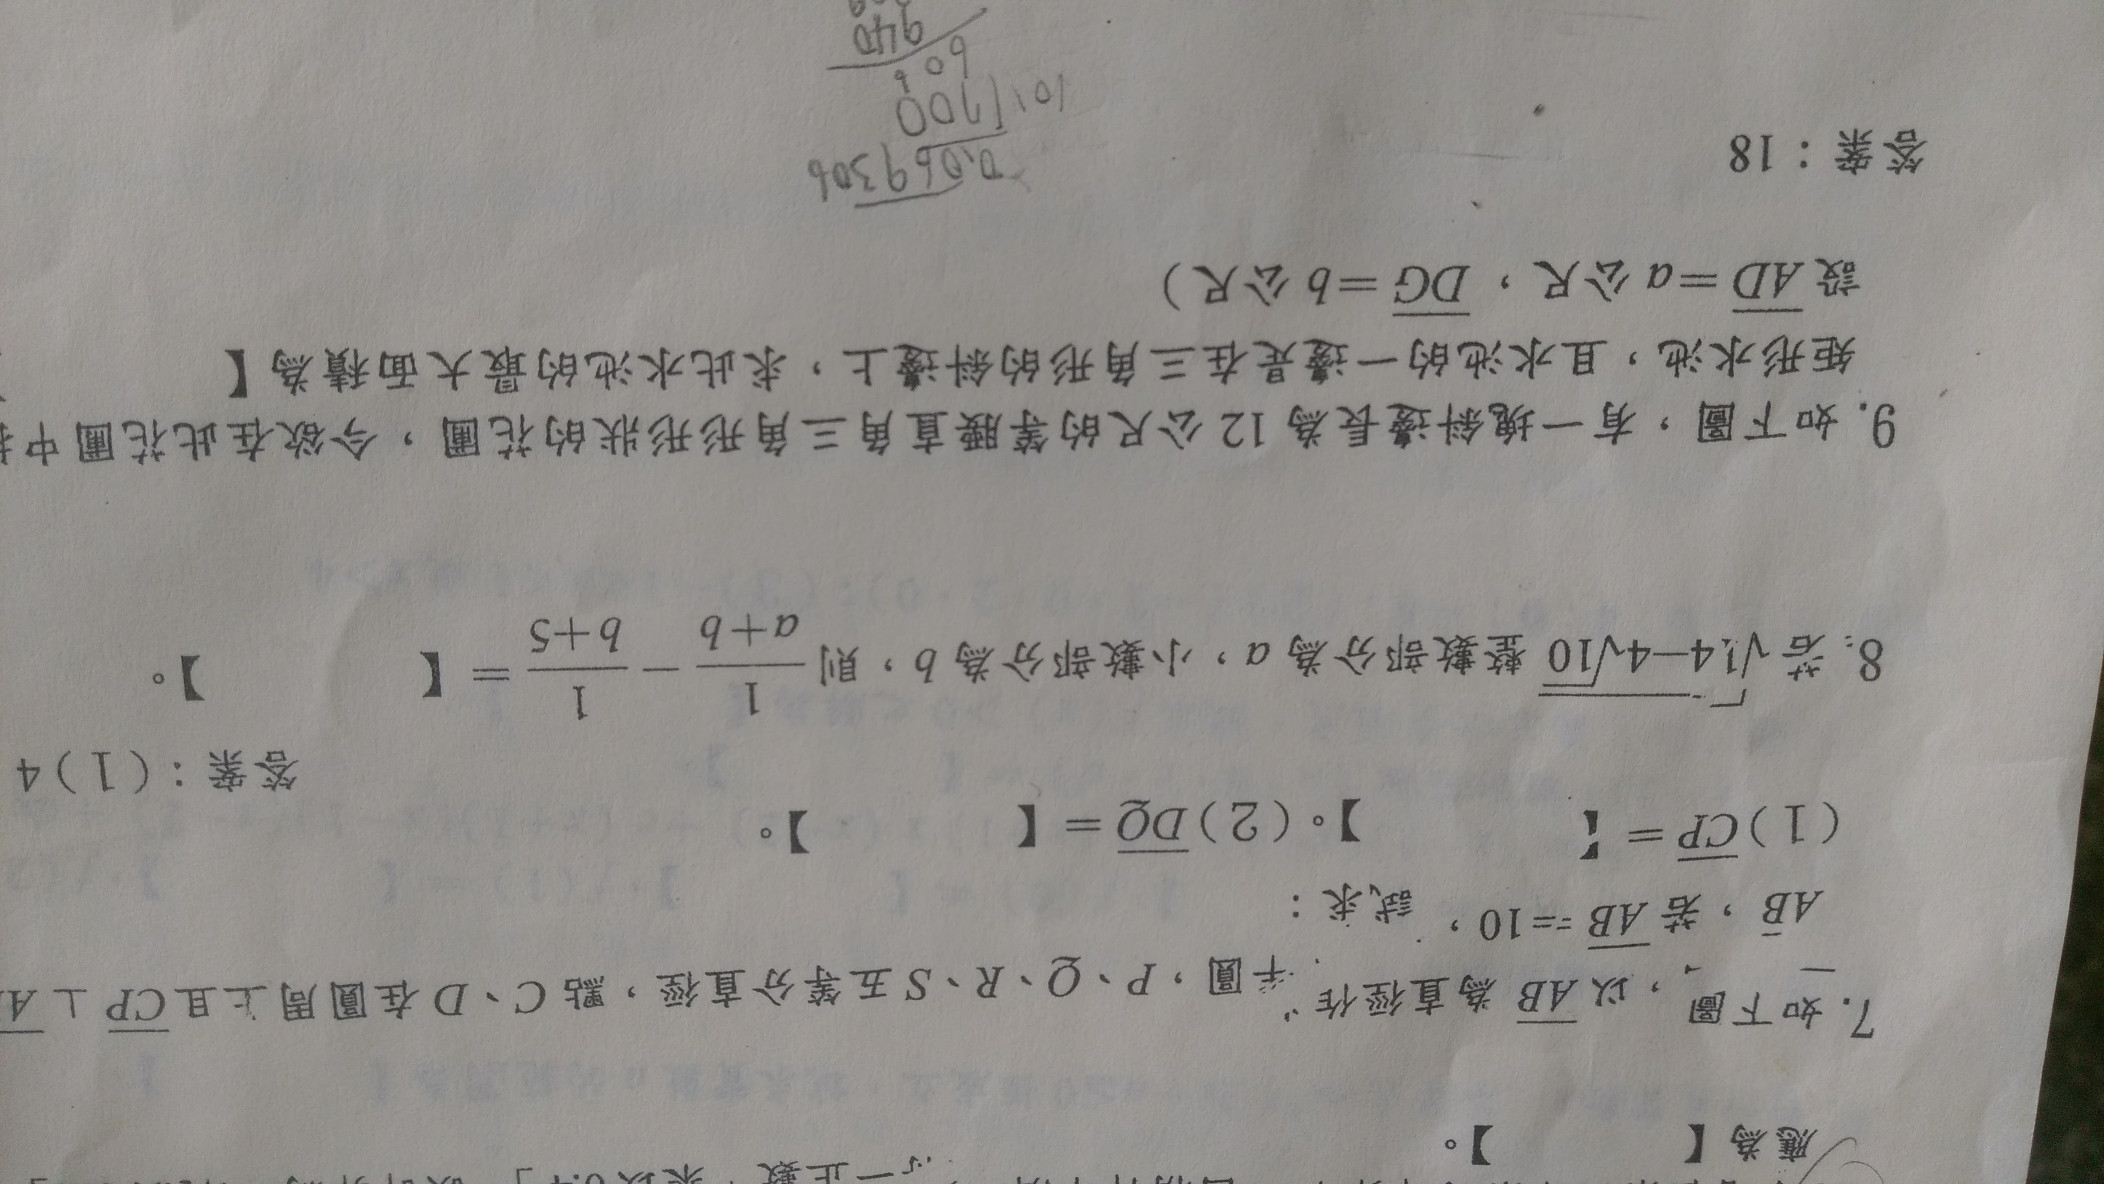 應為【 】。
7. 如下圖，以AB為直徑作 半圓，P、Q、R、S五等分直徑，點C、D在圓周上且CP⊥
AB，若AB==10，試求：
(1)CP=【 】。(2)DQ=【 】。
答案：(1)4
8. 若√14-4√10整數部分為a，小數部分為b，則1/(a+b)-1/(b+5)=【 】。
9. 如下圖，有一塊斜邊長為12公尺的等腰直角三角形形狀的花圃，今欲在此花圃中
矩形水池，且水池的一邊是在三角形的斜邊上，求此水池的最大面積為【
設AD=a公尺，DG=b公尺)
答案：18
0.069306
101 700
606
940